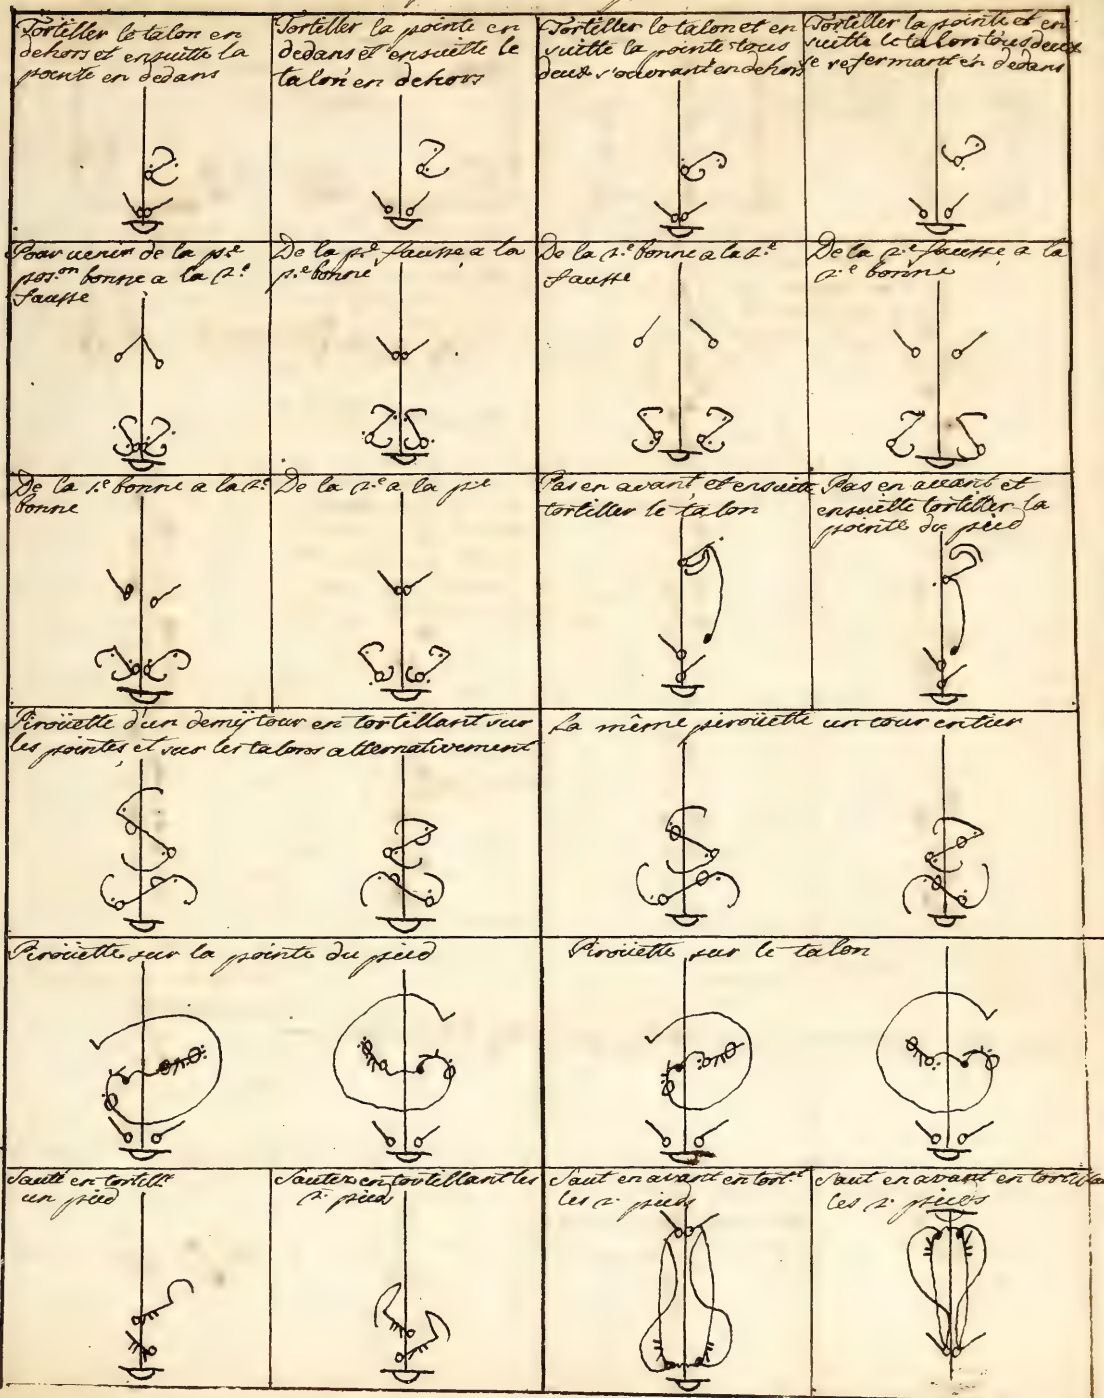 Tortiller le talon en
dehors et ensuitte la
pointe en dedans
Tortiller la pointe en
dedans et ensuitte le
talon en dehors
Tortiller le talon et en
suitte la pointe tous
deux s'ouvrant en dehors
Tortiller la pointe et en
suitte le talon tous deux
se refermant en dedans
Pour venir de la p.e
pos.on bonne a la 2.e
fausse
De la p.e fausse a la
p.e bonne
De la 2.e bonne a la 2.e
fausse
De la 2.e fausse a la
2.e bonne
De la 1.e bonne a la 2.e
bonne
De la 2.e a la p.e
Pas en avant et ensuitte
tortiller le talon
Pas en avant et
ensuitte tortiller la
pointe du pied
Piroüette d'un demÿ tour en tortillant sur
les pointes et sur les talons alternativement
La même piroüette un tour entier
Piroüette sur la pointe du pied
Piroüette sur le talon
Sauté en tortill.t
un pied
Sautez en tortillant les
2 pieds
Saut en avant en tort.t
les 2 pieds
Saut en avant en
les 2 pieds